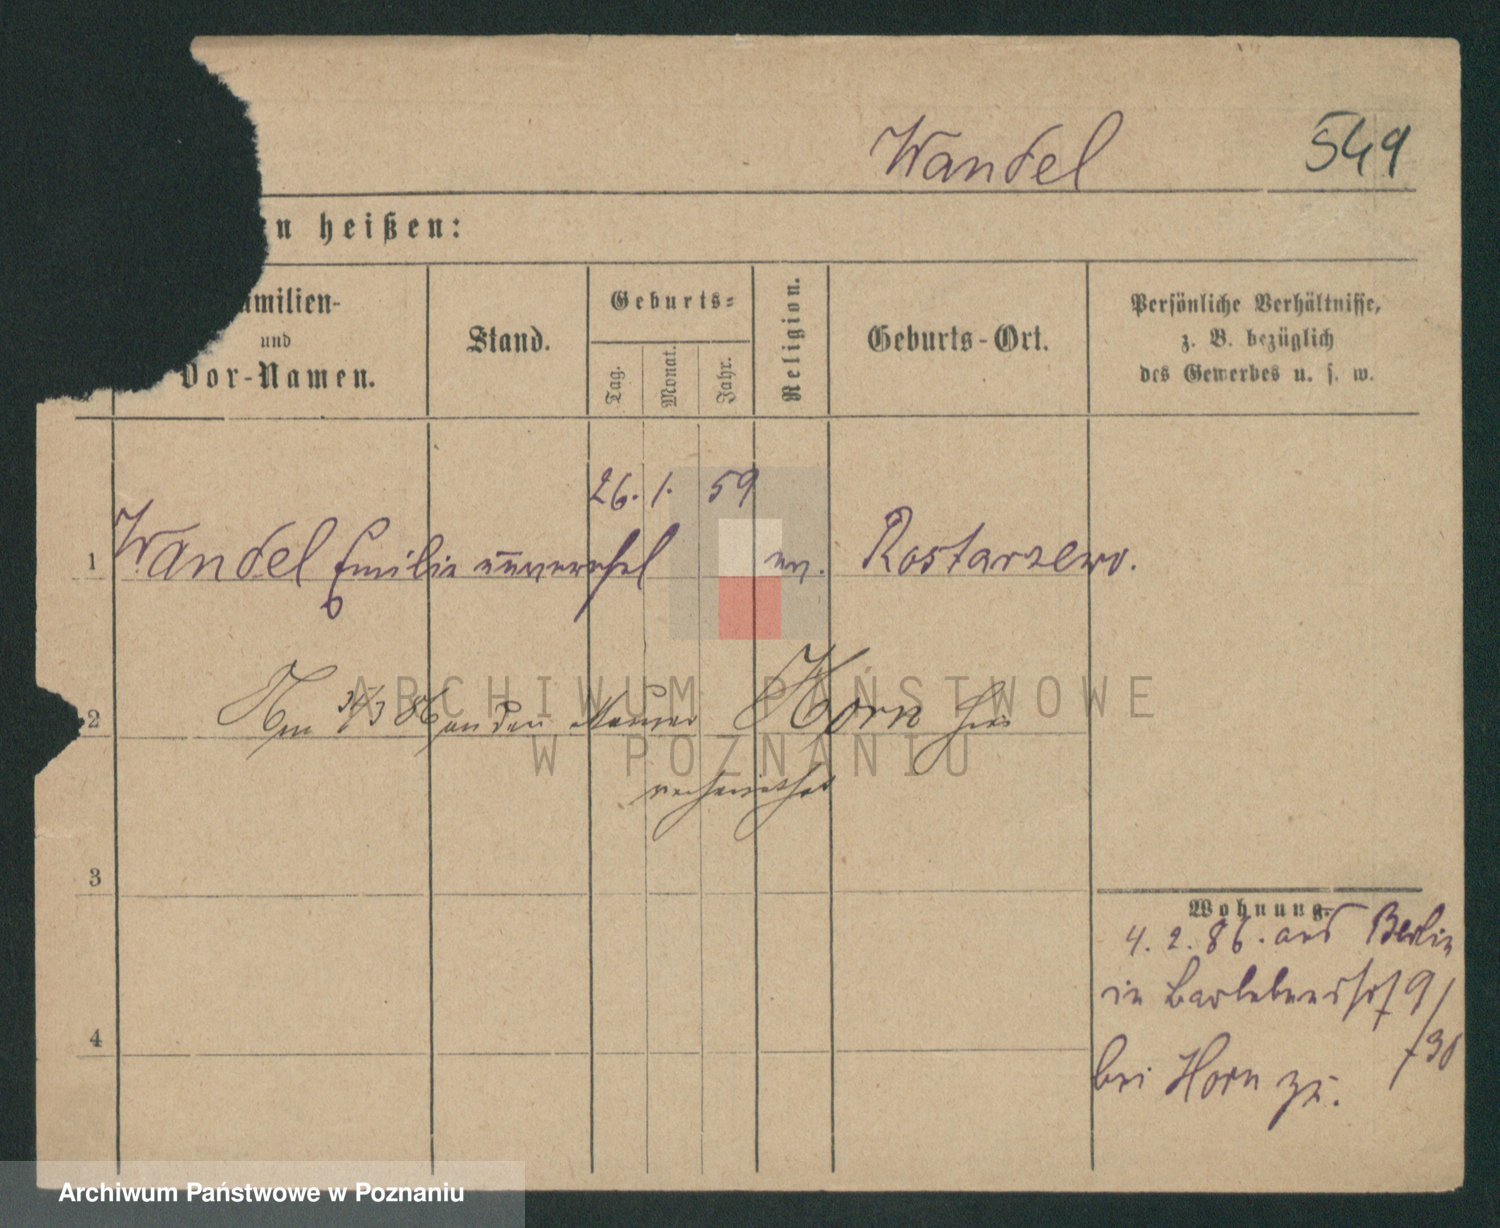 Wandel 549
en heißen:
amilien-
und
Vor-Namen.
Stand.
Geburts=
Tag.
Monat.
Jahr.
Religion.
Geburts-Ort.
Persönliche Verhältnisse,
z. B. bezüglich
des Gewerbes u. s. w.
26. 1. 59
1 Wandel Emilie unverehel ev. Rostarzewo.
2 Am /3 86 an den Maurer Horn hier
verheirathet
3
Wohnung.
4. 2. 86. aus Berlin
in Bartholdshof 9/
4
/30
bei Horn zu.
ARCHIWUM PAŃSTWOWE
W POZNANIU
Archiwum Państwowe w Poznaniu